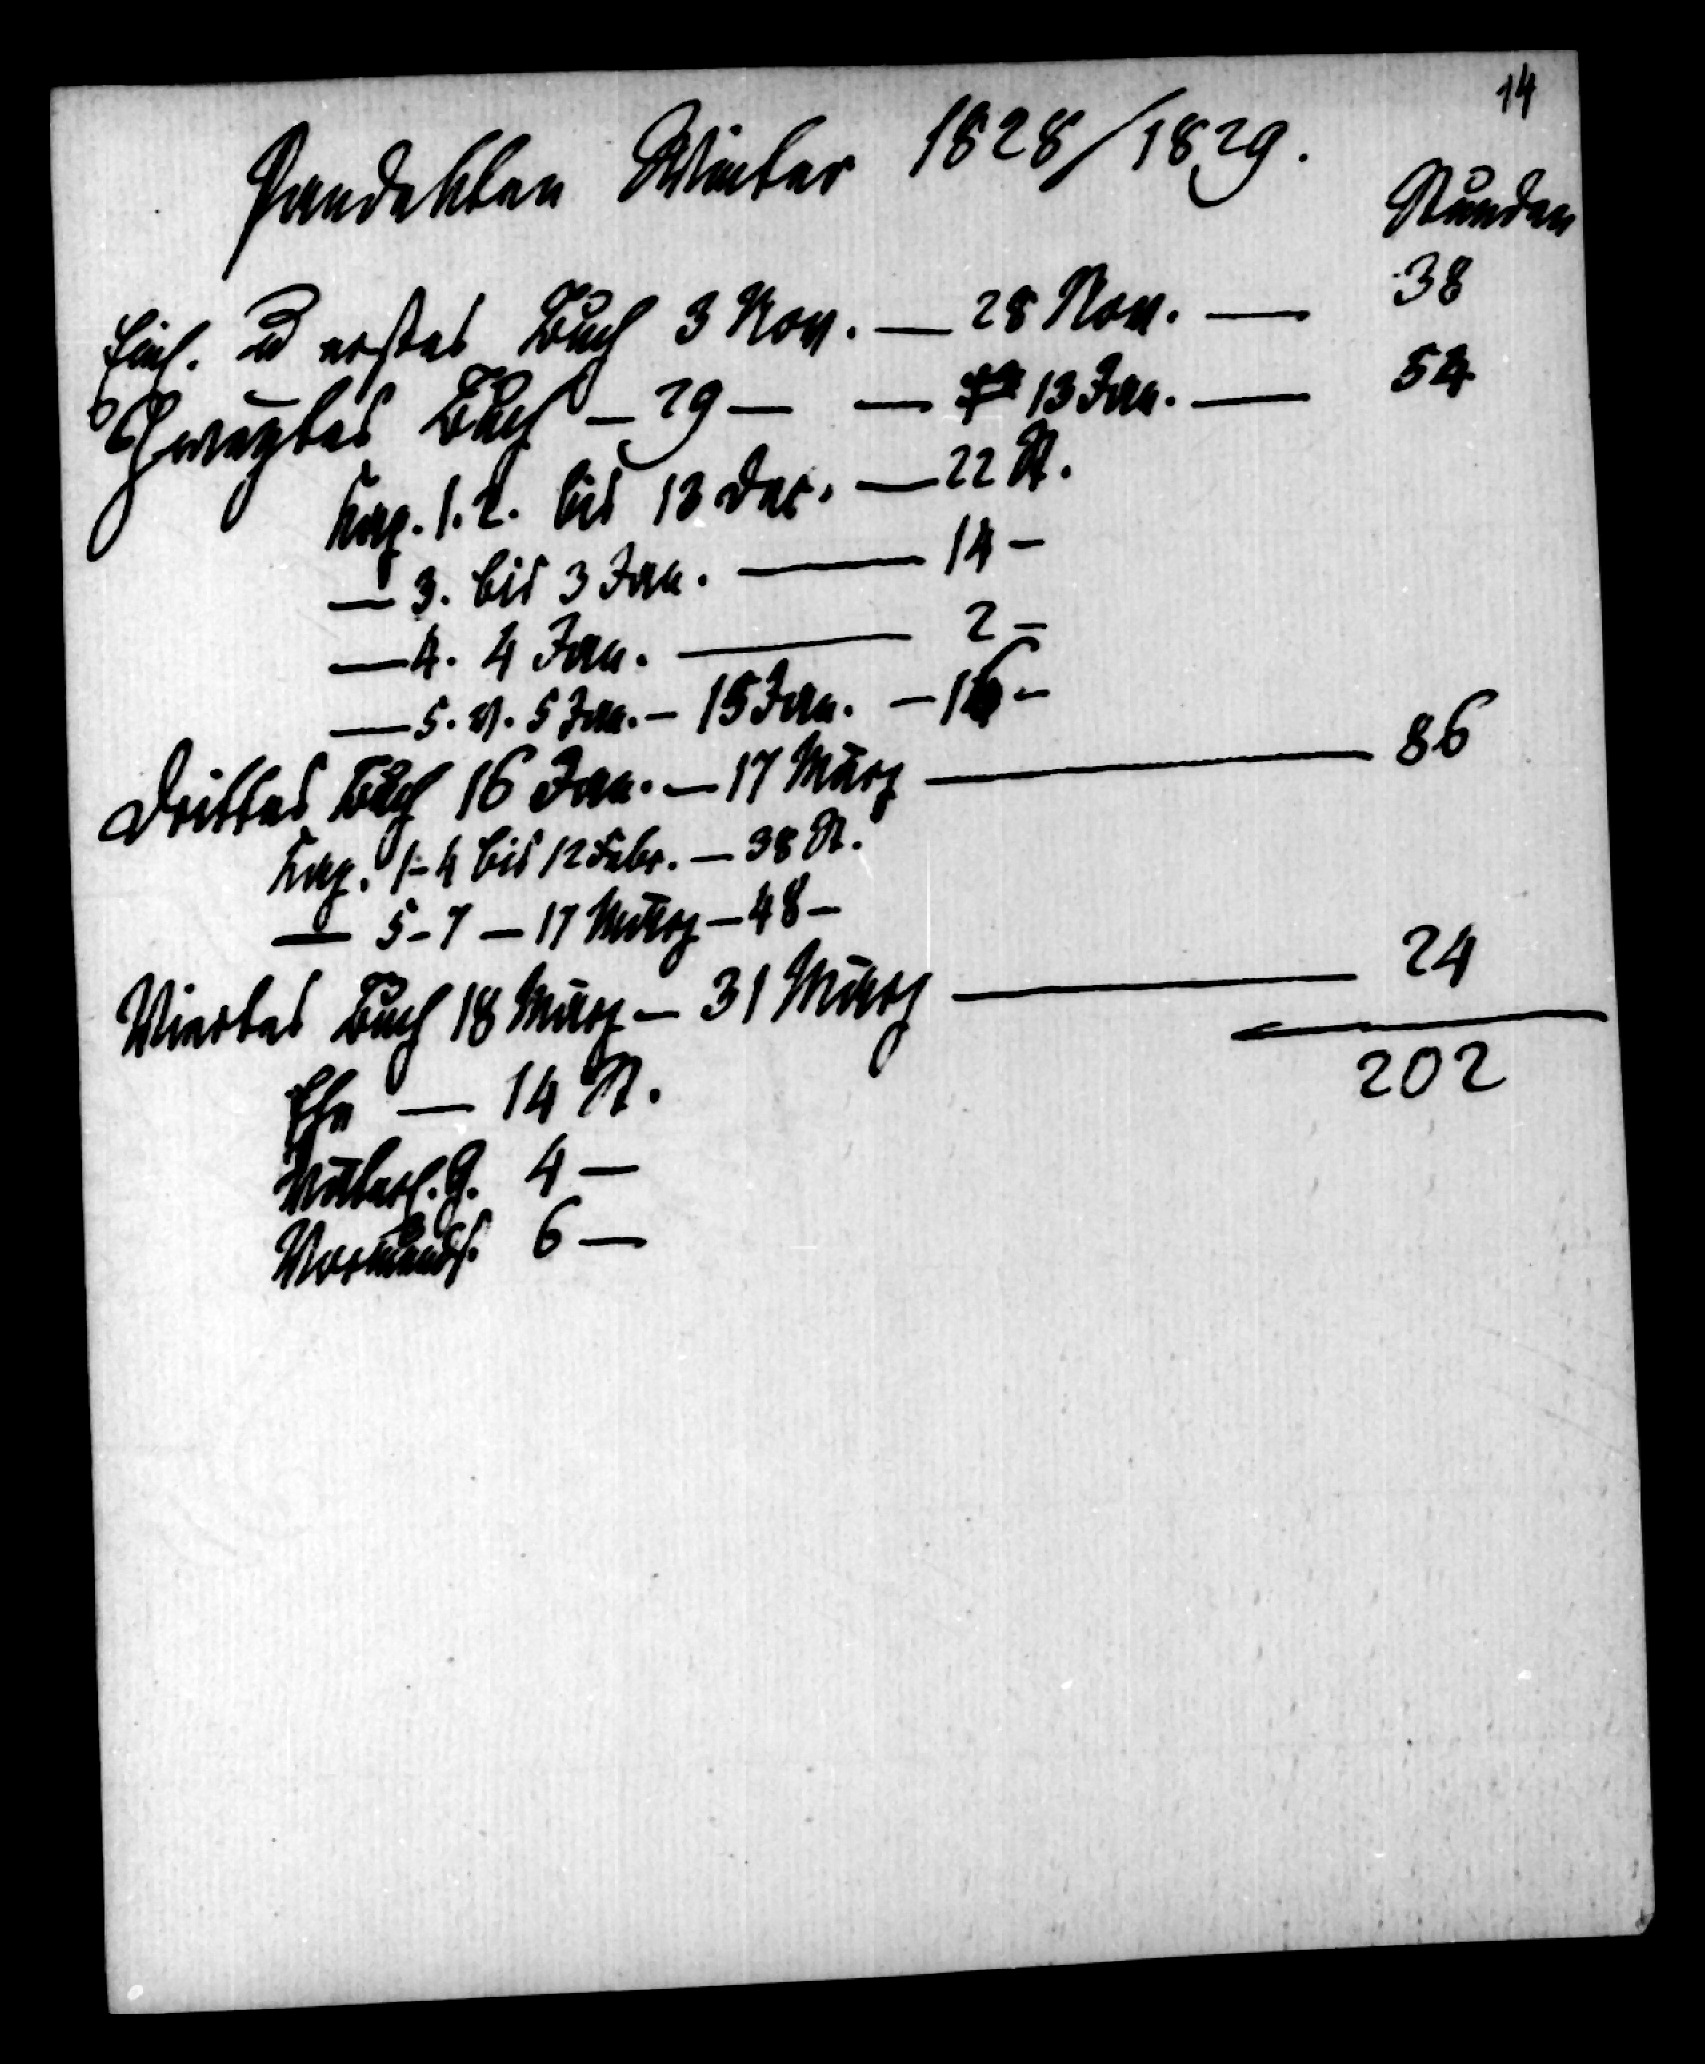 14
Pandekten Winter 1828/1829.
Stunden
Einl. u erstes Buch 3 Nov. — 28 Nov. — 38
Zweytes Buch — 29 — — 13 Jan. — 54
Kap. 1. 2. bis 13 Dec. — 22 St.
— 3. bis 3 Jan. — 14 –
— 4. 4 Jan. — 2 –
— 5. v. 5 Jan. – 15 Jan. — 16 –
Drittes Buch 16 Jan. — 17 März — 86
Kap. 1–4 bis 12 Febr. — 38 St.
— 5–7 — 17 März — 48 –
Viertes Buch 18 März — 31 März — 24
202
Ehe — 14 St.
Väterl. G. 4 —
Vormunds. 6 —